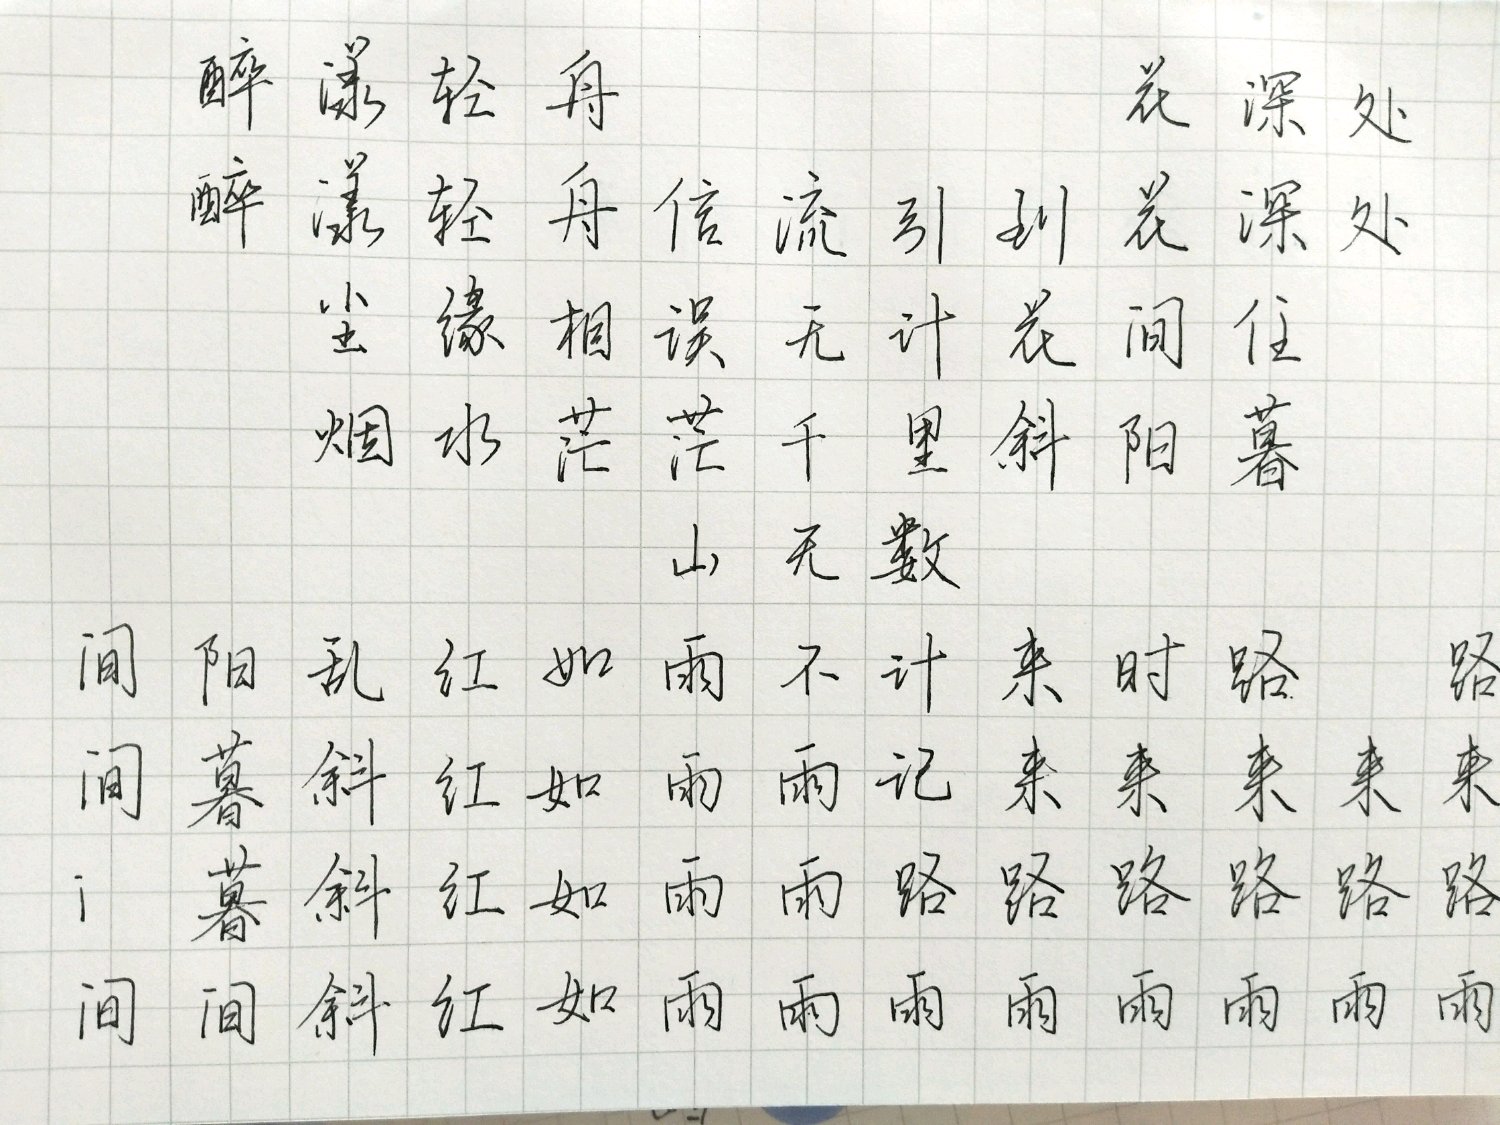 醉漾轻舟 花深处
醉漾轻舟信流引到花深处
尘缘相误无计花间住
烟水茫茫千里斜阳暮
山无数
间阳乱红如雨不计来时路 路
间暮斜红如雨雨记来来来来来
暮斜红如雨雨路路路路路路
间间斜红如雨雨雨雨雨雨雨雨